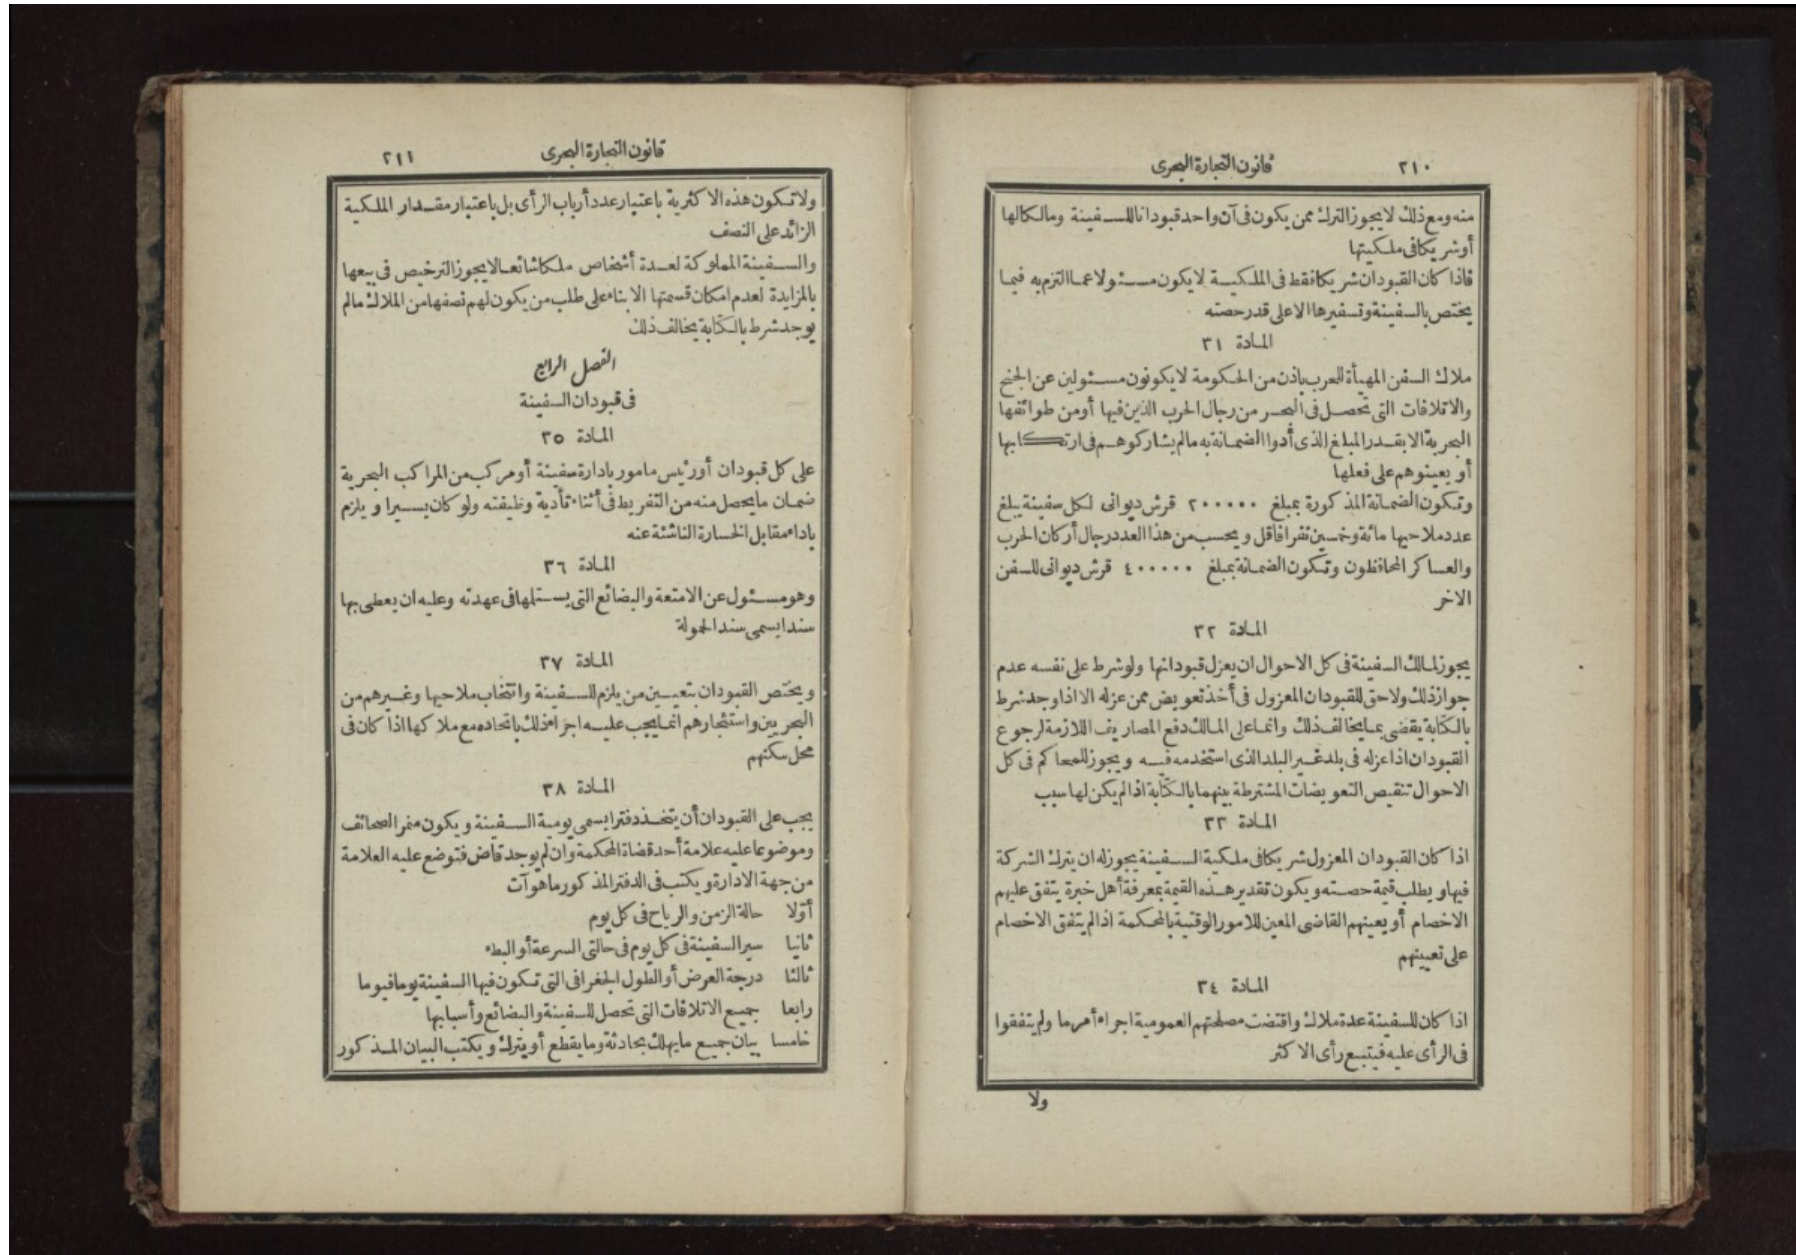 ٢١٠ قانون التجارة البحرى
منه ومع ذلك لا يجوز الترك ممن يكون فى آن واحد قبودانا للسفينة ومالكالها
أو شريكا فى ملكيتها
فاذا كان القبودان شريكا فقط فى الملكية لا يكون مسئولا عما التزم به فيما
يختص بالسفينة وتسفيرها الا على قدر حصته
المادة ٣١
ملاك السفن المهيأة للحرب باذن من الحكومة لا يكونون مسئولين عن الجنح
والاتلافات التى تحصل فى البحر من رجال الحرب الذين فيها أو من طوائفها
البحرية الا بقدر المبلغ الذى أدوا الضمانة به مالم يشاركوهم فى ارتكابها
أو يعينوهم على فعلها
وتكون الضمانة المذكورة بمبلغ ٢٠٠٠٠٠ قرش ديوانى لكل سفينة يبلغ
عدد ملاحيها مائة وخمسين نفرا فاقل ويحسب من هذا العدد رجال أركان الحرب
والعساكر المحافظون وتكون الضمانة بمبلغ ٤٠٠٠٠٠ قرش ديوانى للسفن
الاخر
المادة ٣٢
يجوز لمالك السفينة فى كل الاحوال ان يعزل قبودانها ولو شرط على نفسه عدم
جواز ذلك ولا حق للقبودان المعزول فى أخذ تعويض ممن عزله الا اذا وجد شرط
بالكتابة يقضى بما يخالف ذلك وانما على المالك دفع المصاريف اللازمة لرجوع
القبودان اذا عزله فى بلد غير البلد الذى استخدمه فيه ويجوز للمحاكم فى كل
الاحوال تنقيص التعويضات المشترطة بينهما بالكتابة اذا لم يكن لها سبب
المادة ٣٣
اذا كان القبودان المعزول شريكا فى ملكية السفينة يجوز له ان يترك الشركة
فيها ويطلب قيمة حصته ويكون تقدير هذه القيمة بمعرفة أهل خبرة يتفق عليهم
الاخصام أو يعينهم القاضى المعين للامور الوقتية بالمحكمة اذا لم يتفق الاخصام
على تعيينهم
المادة ٣٤
اذا كان للسفينة عدة ملاك واقتضت مصلحتهم العمومية اجراء أمر ما ولم يتفقوا
فى الرأى عليه فيتبع رأى الاكثر
ولا
قانون التجارة البحرى ٢١١
ولا تكون هذه الاكثرية باعتبار عدد أرباب الرأى بل باعتبار مقدار الملكية
الزائد على النصف
والسفينة المملوكة لعدة أشخاص ملكا شائعا لا يجوز الترخيص فى بيعها
بالمزايدة لعدم امكان قسمتها الا بناء على طلب من يكون لهم نصفها من الملاك مالم
يوجد شرط بالكتابة يخالف ذلك
الفصل الرابع
فى قبودان السفينة
المادة ٣٥
على كل قبودان أو رئيس مامور بادارة سفينة أو مركب من المراكب البحرية
ضمان ما يحصل منه من التفريط فى أثناء تأدية وظيفته ولو كان يسيرا ويلزم
باداء مقابل الخسارة الناشئة عنه
المادة ٣٦
وهو مسئول عن الامتعة والبضائع التى يستلمها فى عهدته وعليه ان يعطى بها
سندا يسمى سند الحمولة
المادة ٣٧
ويختص القبودان بتعيين من يلزم للسفينة وانتخاب ملاحيها وغيرهم من
البحريين واستئجارهم انما يجب عليه اجراء ذلك باتحاده مع ملاكها اذا كان فى
محل سكنهم
المادة ٣٨
يجب على القبودان أن يتخذ دفترا يسمى يومية السفينة ويكون منمر الصحائف
وموضوعا عليه علامة أحد قضاة المحكمة وان لم يوجد قاض فتوضع عليه العلامة
من جهة الادارة ويكتب فى الدفتر المذكور ما هو آت
أولا حالة الزمن والرياح فى كل يوم
ثانيا سير السفينة فى كل يوم فى حالتى السرعة أو البطء
ثالثا درجة العرض أو الطول الجغرافى التى تكون فيها السفينة يوما فيوما
رابعا جميع الاتلافات التى تحصل للسفينة والبضائع وأسبابها
خامسا بيان جميع ما يهلك بحادثة وما يقطع أو يترك ويكتب البيان المذكور